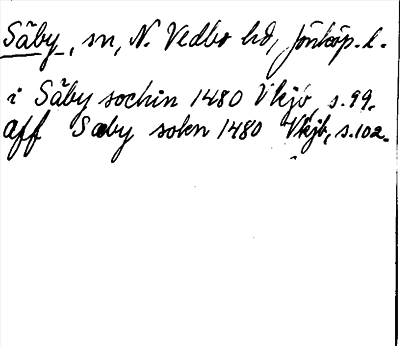 Säby, sn, N. Vedbo hd, Jönköp. l.
i Säby sochin 1480 Vkjb, s. 99.
aff Sæby sokn 1480 Vkjb, s. 102.